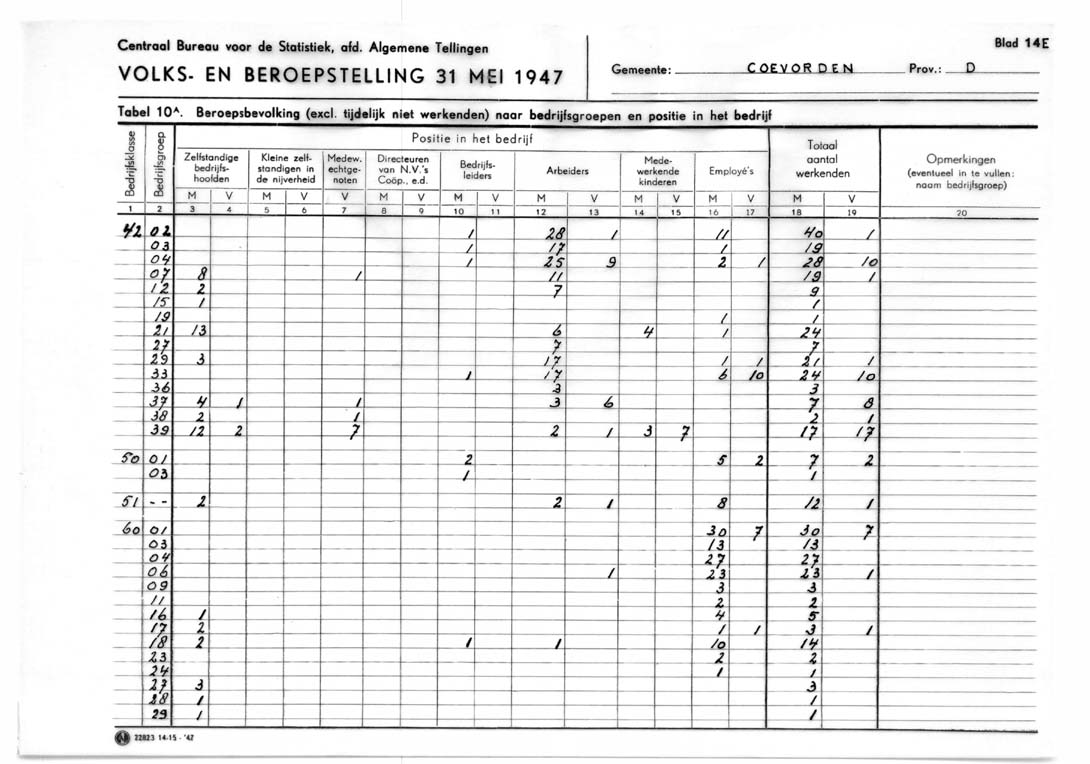 Centraal Bureau voor de Statistiek, afd. Algemene Tellingen
Blad 14E
VOLKS- EN BEROEPSTELLING 31 MEI 1947
Gemeente: COEVORDEN Prov.: D
Tabel 10A. Beroepsbevolking (excl. tijdelijk niet werkenden) naar bedrijfsgroepen en positie in het bedrijf
Bedrijfsklasse
Bedrijfsgroep
Positie in het bedrijf
Zelfstandige bedrijfs-hoofden
Kleine zelf-standigen in de nijverheid
Medew. echtge-noten
Directeuren van N.V.'s Coöp., e.d.
Bedrijfs-leiders
Arbeiders
Mede-werkende kinderen
Employé's
Totaal aantal werkenden
Opmerkingen (eventueel in te vullen: naam bedrijfsgroep)
M V M V V M V M V M V M V M V M V
1 2 3 4 5 6 7 8 9 10 11 12 13 14 15 16 17 18 19 20
42 02 1 28 1 11 40 1
03 1 17 1 19
04 1 25 9 2 1 28 10
07 8 1 11 19 1
12 2 7 9
15 1 1
19 1 1
21 13 6 4 1 24
27 7 7
29 3 17 1 1 21 1
33 1 17 6 10 24 10
36 3 3
37 4 1 1 3 6 7 8
38 2 1 2 1
39 12 2 7 2 1 3 7 17 17
50 01 2 5 2 7 2
03 1 1
51 -- 2 2 1 8 12 1
60 01 30 7 30 7
03 13 13
04 27 27
06 1 23 23 1
09 3 3
11 2 2
16 1 4 5
17 2 1 1 3 1
18 2 1 1 10 14
23 2 2
24 1 1
27 3 3
28 1 1
29 1 1
22823 14-15 - '47